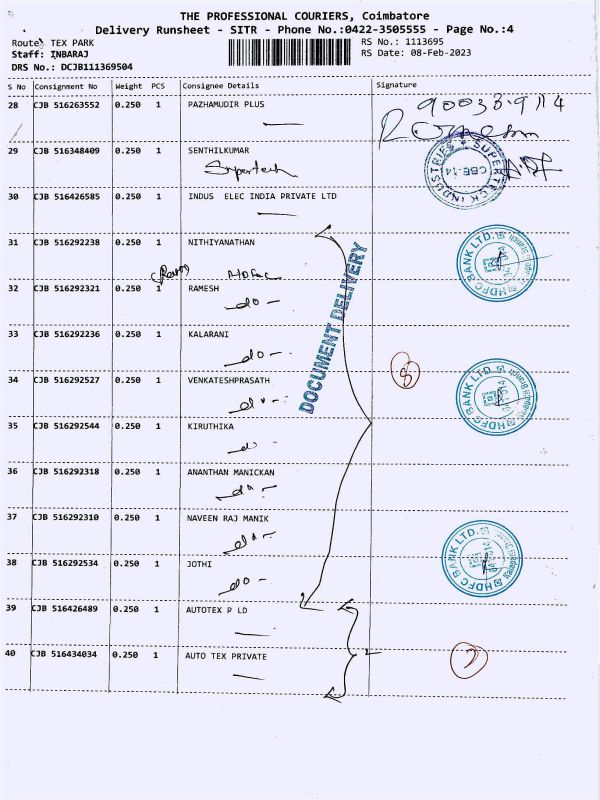 THE PROFESSIONAL COURIERS, Coimbatore
Delivery Runsheet - SITR - Phone No.:0422-3505555 - Page No.:4
Route: TEX PARK
RS No.: 1113695
Staff: INBARAJ
RS Date: 08-Feb-2023
DRS No.: DCJB111369504
S No Consignment No Weight PCS Consignee Details Signature
28 CJB 516263552 0.250 1 PAZHAMUDIR PLUS
29 CJB 516348409 0.250 1 SENTHILKUMAR
Supertech
SUPER TECH INDUSTRIES
CBE-14
30 CJB 516426585 0.250 1 INDUS ELEC INDIA PRIVATE LTD
31 CJB 516292238 0.250 1 NITHIYANATHAN
HDFC BANK LTD.
HDFC
32 CJB 516292321 0.250 1 RAMESH
do
DOCUMENT DELIVERY
33 CJB 516292236 0.250 1 KALARANI
do
8
34 CJB 516292527 0.250 1 VENKATESHPRASATH
do
HDFC BANK LTD.
35 CJB 516292544 0.250 1 KIRUTHIKA
do
36 CJB 516292318 0.250 1 ANANTHAN MANICKAN
do
37 CJB 516292310 0.250 1 NAVEEN RAJ MANIK
do
HDFC BANK LTD.
38 CJB 516292534 0.250 1 JOTHI
do
39 CJB 516426489 0.250 1 AUTOTEX P LD
40 CJB 516434034 0.250 1 AUTO TEX PRIVATE